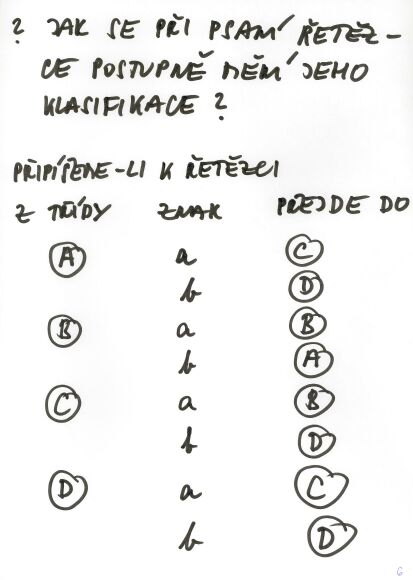 ? JAK SE PŘI PSANÍ ŘETĚZ-
CE POSTUPNĚ MĚNÍ JEHO
KLASIFIKACE ?
PŘIPÍŠEME-LI K ŘETĚZCI
Z TŘÍDY ZNAK PŘEJDE DO
A a C
b D
B a B
b A
C a B
b D
D a C
b D
6